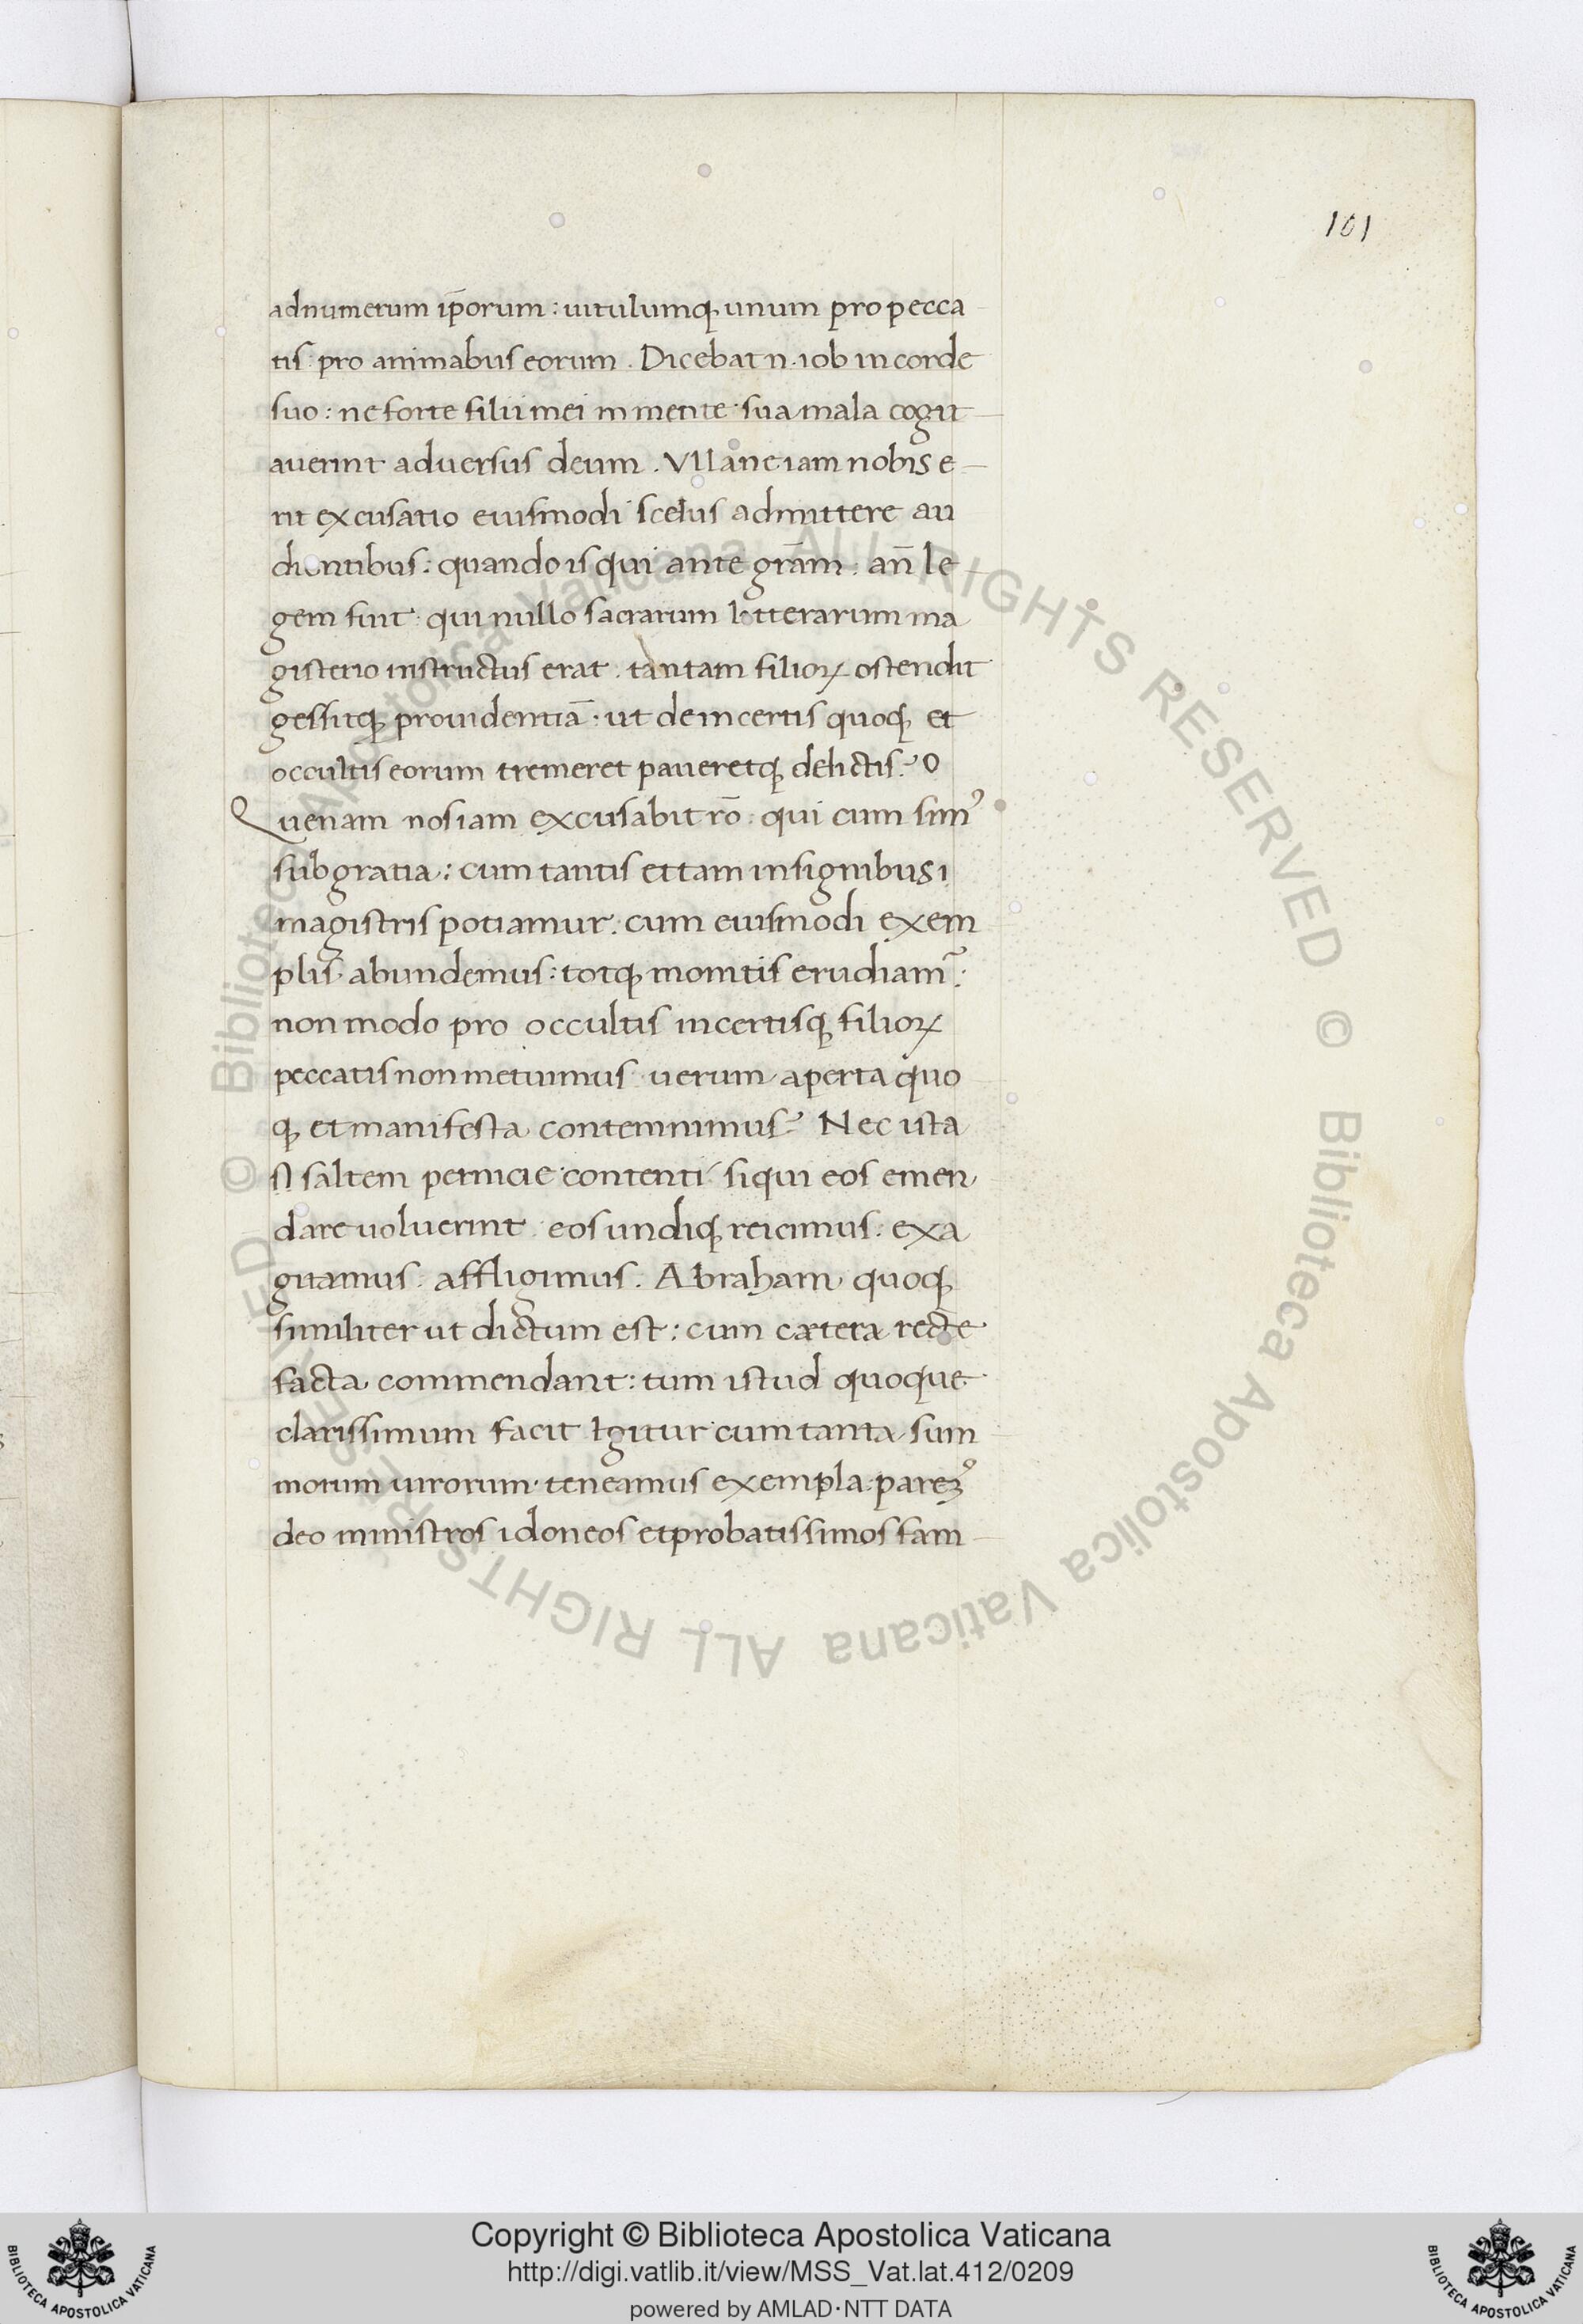 101
adnumerum ip̄orum : uitulumq; unum pro pecca
tis pro animabus eorum . Dicebat n. iob in corde
suo : ne forte filii mei in mente sua mala cogit
auerint aduersus deum . Vllane iam nobis e
rit excusatio eiusmodi scelus admittere au
dientibus : quando is qui ante grām . an̄ le
gem fuit qui nullo sacrarum litterarum ma
gisterio instructus erat . tantam filioꝝ ostendit
gessitq; prouidentiā . ut de incertis quoq; et
occultis eorum tremeret paueretq; delictis ? O
Quenam nos iam excusabit rō . qui cum simꝰ
sub gratia : cum tantis et tam insignibus i
magistris potiamur . cum eiusmodi exem
plis abundemus : totq; monitis erudiam̃ :
non modo pro occultis incertisq; filioꝝ
peccatis non metuimus uerum aperta quo
q; et manifesta contemnimus ? Nec ista
st̄ saltem pernicie contenti siqui eos emen
dare uoluerint . eos undiq; reicimus : exa
gitamus . affligimus . Abraham quoq;
similiter ut dictum est : cum cætera recte
facta commendant : tum istud quoque
clarissimum facit Igitur cum tanta sum
morum uirorum teneamus exempla . paremꝰ
deo ministros idoneos et probatissimos fam
© Biblioteca Apostolica Vaticana ALL RIGHTS RESERVED © Biblioteca Apostolica Vaticana ALL RIGHTS RESERVED
Copyright © Biblioteca Apostolica Vaticana
http://digi.vatlib.it/view/MSS_Vat.lat.412/0209
powered by AMLAD·NTT DATA
BIBLIOTECA APOSTOLICA VATICANA
BIBLIOTECA APOSTOLICA VATICANA